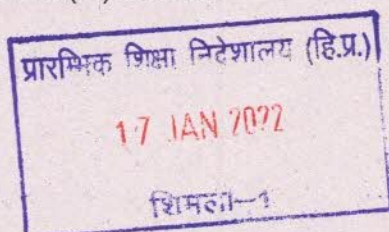 प्रारम्भिक शिक्षा निदेशालय (हि.प्र.)
17 JAN 2022
शिमला-1